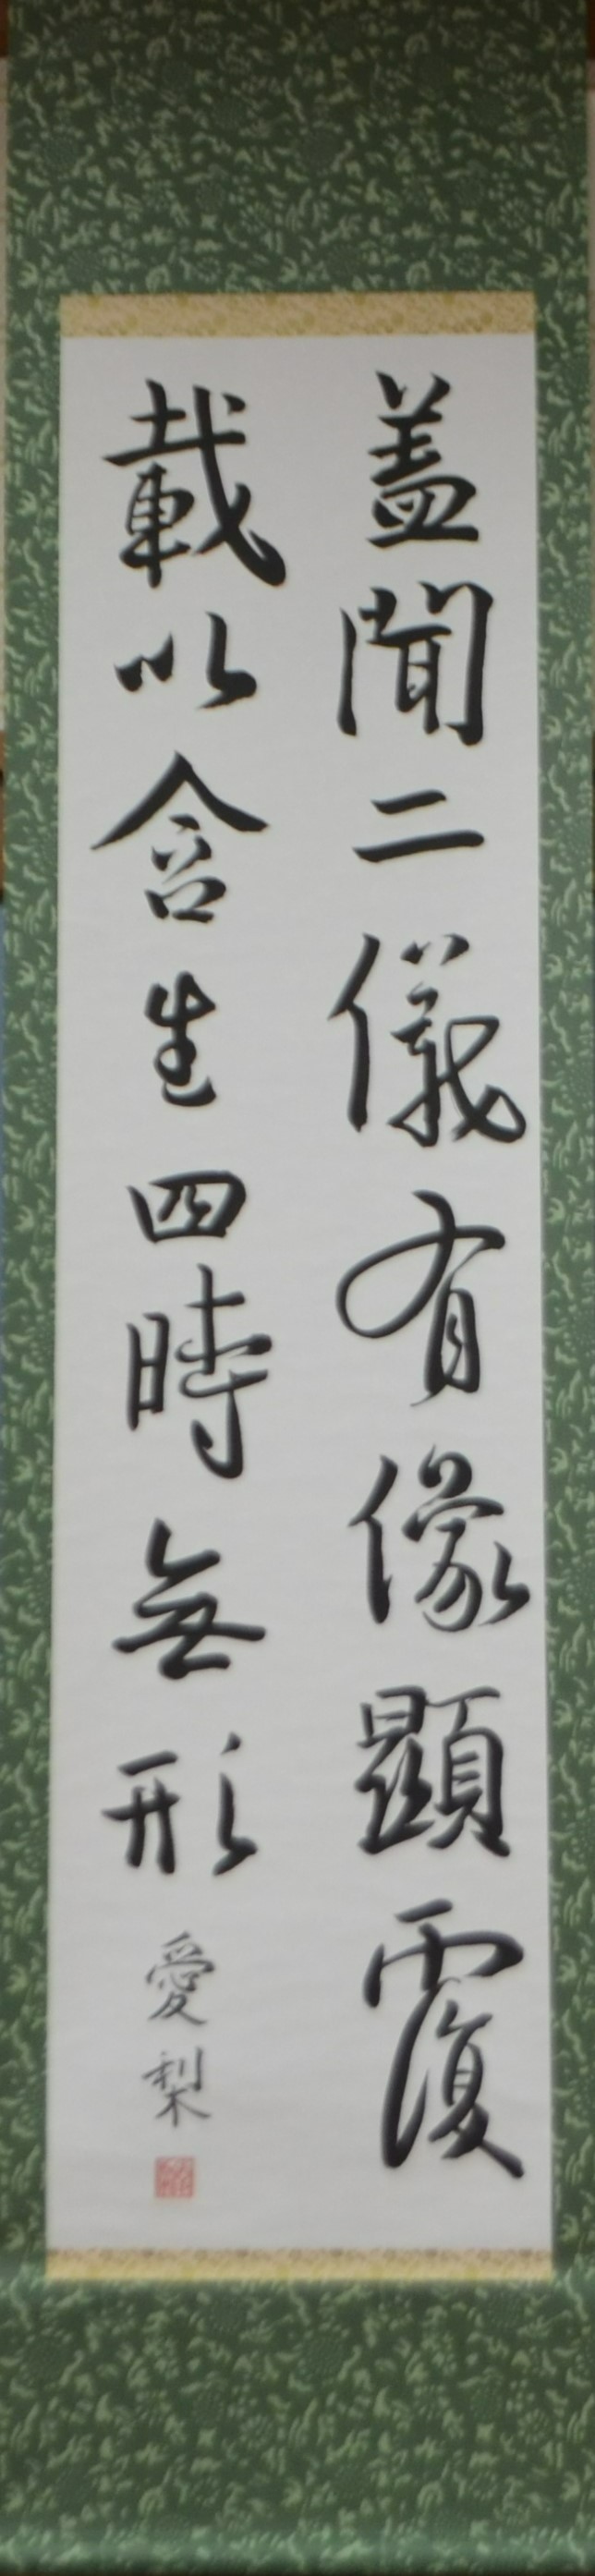 蓋聞二儀有像顯覆
載以含生四時無形
愛梨